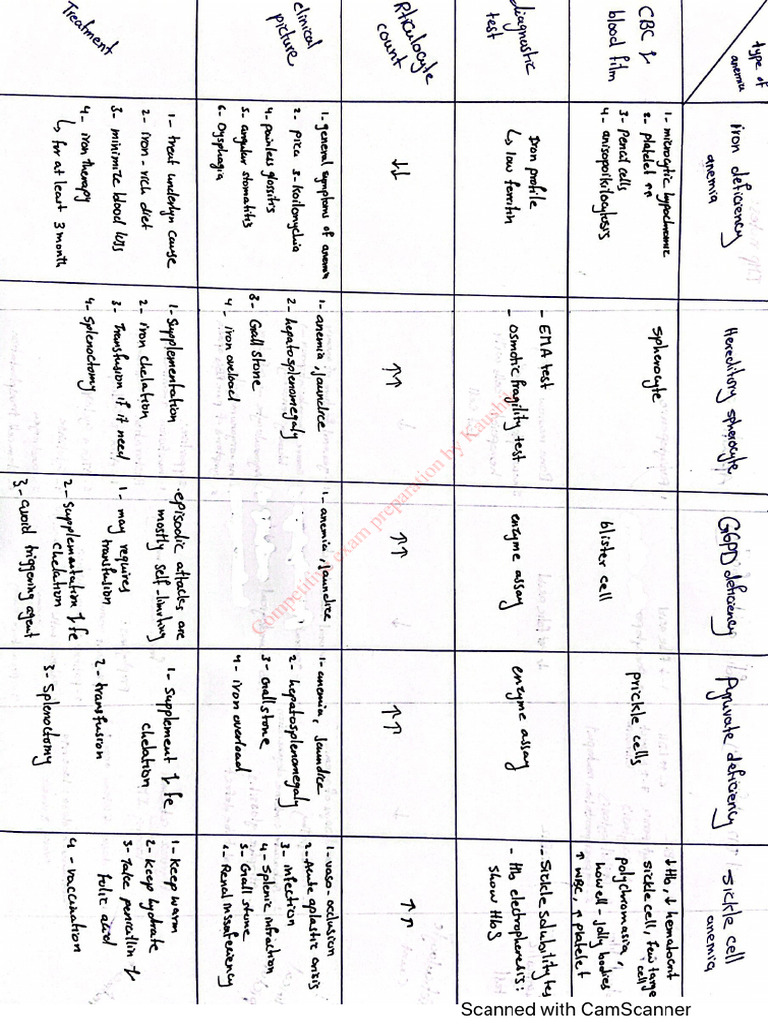 type of
anemia
iron deficiency
anemia
Hereditory spherocyte
G6PD deficiency
Pyruvate deficiency
Sickle cell
anemia
CBC &
blood film
1- microcytic hypochromic
2- platelet ↑↑
3- Pencil cells
4- anisopoikilocytosis
spherocyte
blister cell
prickle cells
↓Hb, ↓ hematocrit
sickle cell, few targe
cell
polychromasia,
howell-Jolly bodies
↑ WBC, ↑ platelet
diagnostic
test
Iron profile
↳ low ferritin
- EMA test
- osmotic fragility test
enzyme assay
enzyme assay
- Sickle solubility tes
- Hb electrophoresis:
show HbS
Rticulocyte
count
↓↓
↑↑
↑↑
↑↑
↑↑
clinical
picture
1- general symptoms of anemia
2- pica 3- Koilonychia
4- painless glossitis
5- angular stomatitis
6- Dysphagia
1- anemia, Jaundice
2- hepatosplenomegaly
3- Gall stone
4- iron overload
1- anemia, Jaundice
1- anemia, Jaundice
2- hepatosplenomegaly
3- Gall stone
4- iron overload
1- vaso-occlusion
2- Acute aplastic crisis
3- infection
4- Splenic infraction
5- Gall stone
6- Renal insufficiency
Treatment
1- treat underlyn cause
2- iron-rich diet
3- minimize blood loss
4- iron therapy
↳ for at least 3 month
1- Supplementation
2- iron chelation
3- Transfusion if it need
4- Splenoctomy
. episodic attacks are
mostly self-limiting
1- may requires
transfusion
2- Supplementation & fe
chelation
3- avoid triggering agent
1- Supplement & fe
chelation
2- transfusion
3- Splenoctomy
1- Keep warm
2- Keep hydrate
3- Take penicillin &
folic acid
4- vaccination
Competitive exam preparation by Kaushi
Scanned with CamScanner